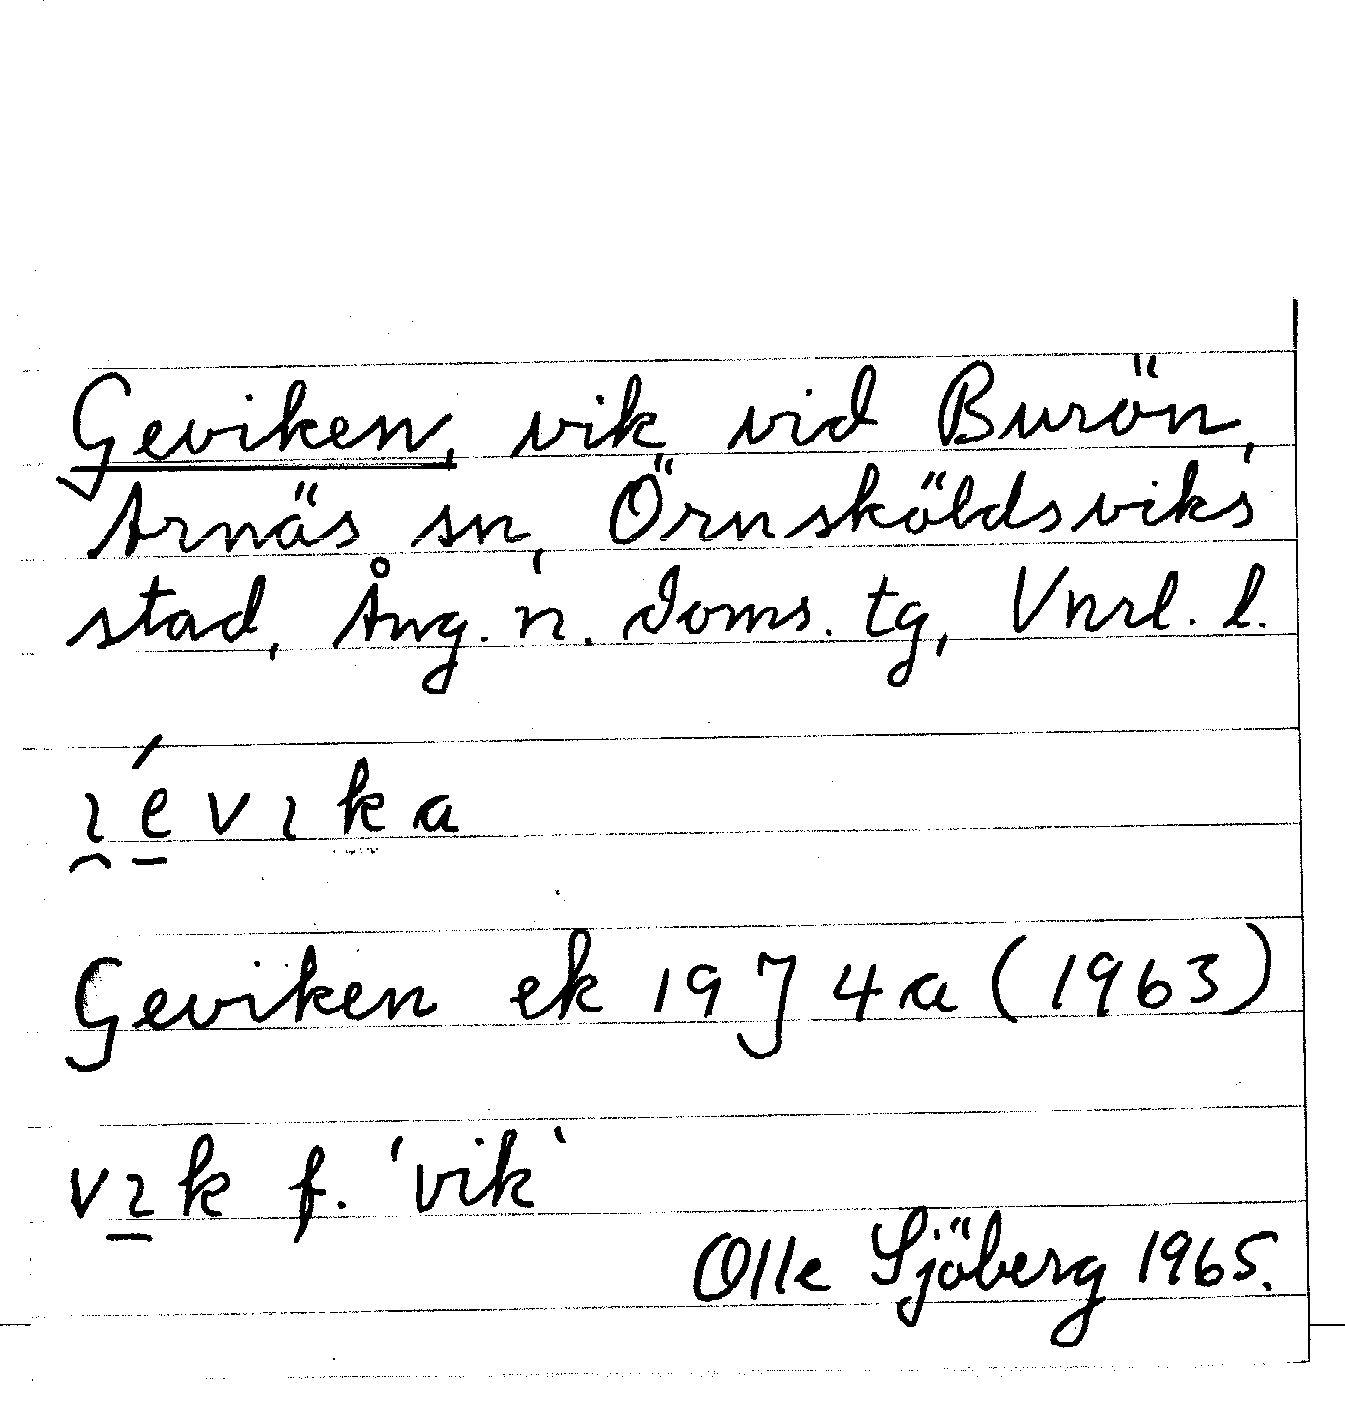 Geviken, vik vid Burön,
Arnäs sn, Örnsköldsviks
stad, Ång. n. doms. tg, Vnrl. l.
ı̯é̱vıka
Geviken ek 19 J 4a (1963)
vı̱k f. 'vik'
Olle Sjöberg 1965.